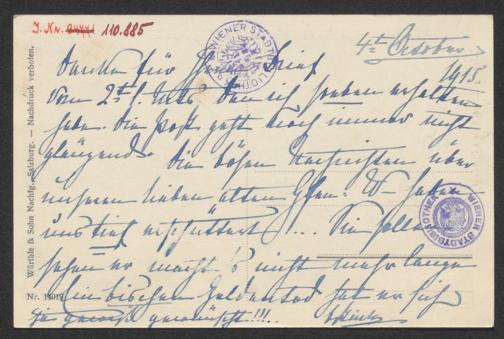 J. Nr. 110.885
WIENER STADTBIBLIOTHEK
4t October
1915
Danke für Ihren Brief
vom 2t d. Mts den ich soeben erhalten
habe. Die Post geht noch immer nicht
glänzend. Die bösen Nachrichten über
unseren lieben alten haben
uns tief erschüttert .... Sie sollen
sehen er macht's nicht mehr lange
Ein bischen Heldentod hat er sich
ja gewünscht!!!..
WIENER STADTBIBLIOTHEK
Würthle & Sohn Nachfg., Salzburg. — Nachdruck verboten.
Nr.